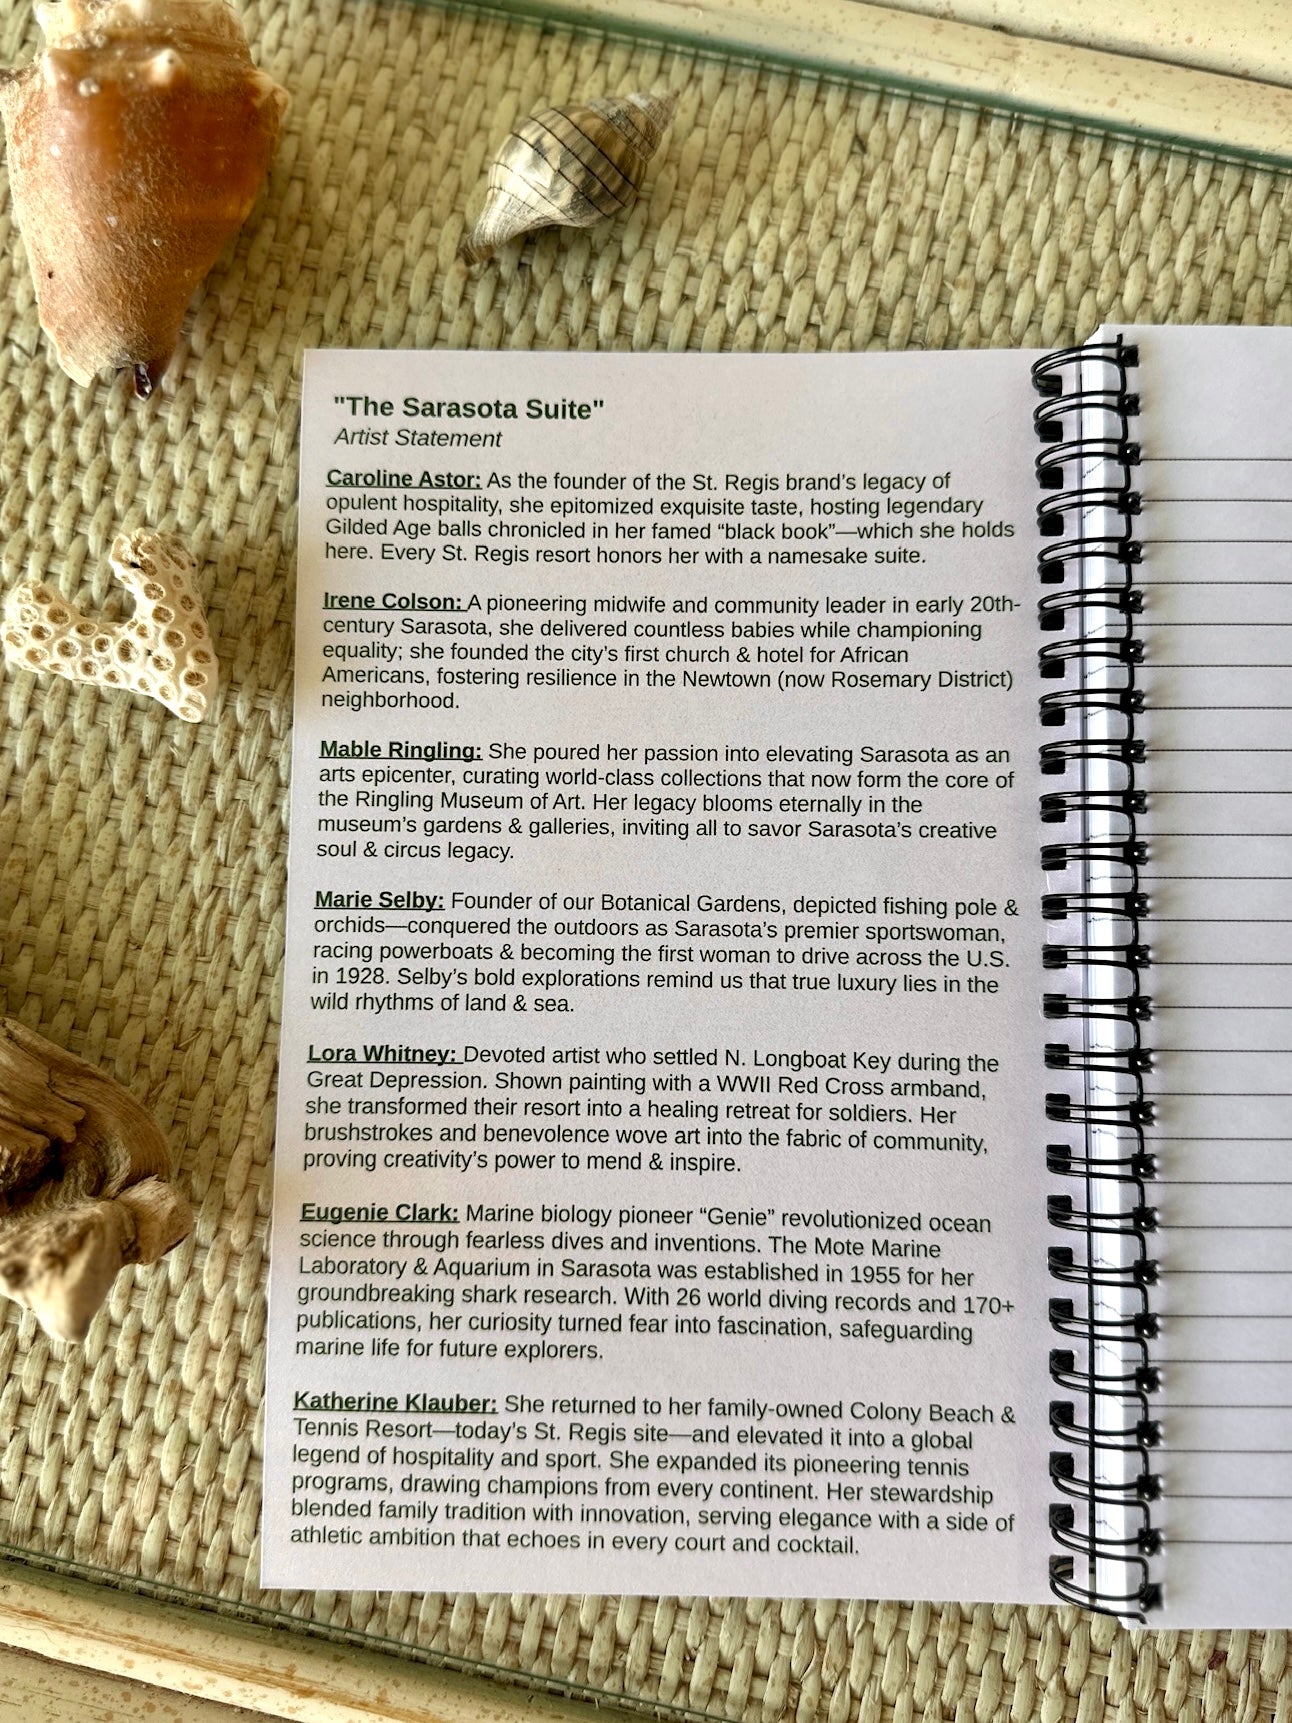 "The Sarasota Suite"
Artist Statement
Caroline Astor: As the founder of the St. Regis brand’s legacy of
opulent hospitality, she epitomized exquisite taste, hosting legendary
Gilded Age balls chronicled in her famed “black book”—which she holds
here. Every St. Regis resort honors her with a namesake suite.
Irene Colson: A pioneering midwife and community leader in early 20th-
century Sarasota, she delivered countless babies while championing
equality; she founded the city’s first church & hotel for African
Americans, fostering resilience in the Newtown (now Rosemary District)
neighborhood.
Mable Ringling: She poured her passion into elevating Sarasota as an
arts epicenter, curating world-class collections that now form the core of
the Ringling Museum of Art. Her legacy blooms eternally in the
museum’s gardens & galleries, inviting all to savor Sarasota’s creative
soul & circus legacy.
Marie Selby: Founder of our Botanical Gardens, depicted fishing pole &
orchids—conquered the outdoors as Sarasota’s premier sportswoman,
racing powerboats & becoming the first woman to drive across the U.S.
in 1928. Selby’s bold explorations remind us that true luxury lies in the
wild rhythms of land & sea.
Lora Whitney: Devoted artist who settled N. Longboat Key during the
Great Depression. Shown painting with a WWII Red Cross armband,
she transformed their resort into a healing retreat for soldiers. Her
brushstrokes and benevolence wove art into the fabric of community,
proving creativity’s power to mend & inspire.
Eugenie Clark: Marine biology pioneer “Genie” revolutionized ocean
science through fearless dives and inventions. The Mote Marine
Laboratory & Aquarium in Sarasota was established in 1955 for her
groundbreaking shark research. With 26 world diving records and 170+
publications, her curiosity turned fear into fascination, safeguarding
marine life for future explorers.
Katherine Klauber: She returned to her family-owned Colony Beach &
Tennis Resort—today’s St. Regis site—and elevated it into a global
legend of hospitality and sport. She expanded its pioneering tennis
programs, drawing champions from every continent. Her stewardship
blended family tradition with innovation, serving elegance with a side of
athletic ambition that echoes in every court and cocktail.